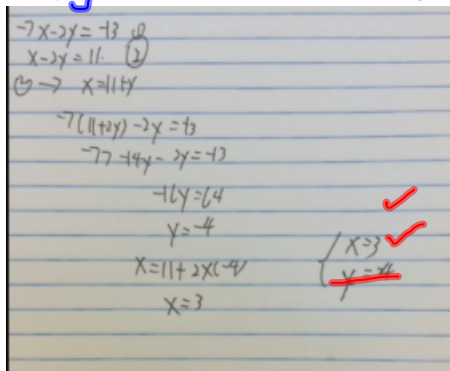 -7x-2y=-13 ①
x-2y=11. ②
x=11+y
-7(11+2y)-2y=-13
-77-14y-2y=-13
-16y=64
y=-4
x=11+2x(-4)
x=3
x=3
y=-4